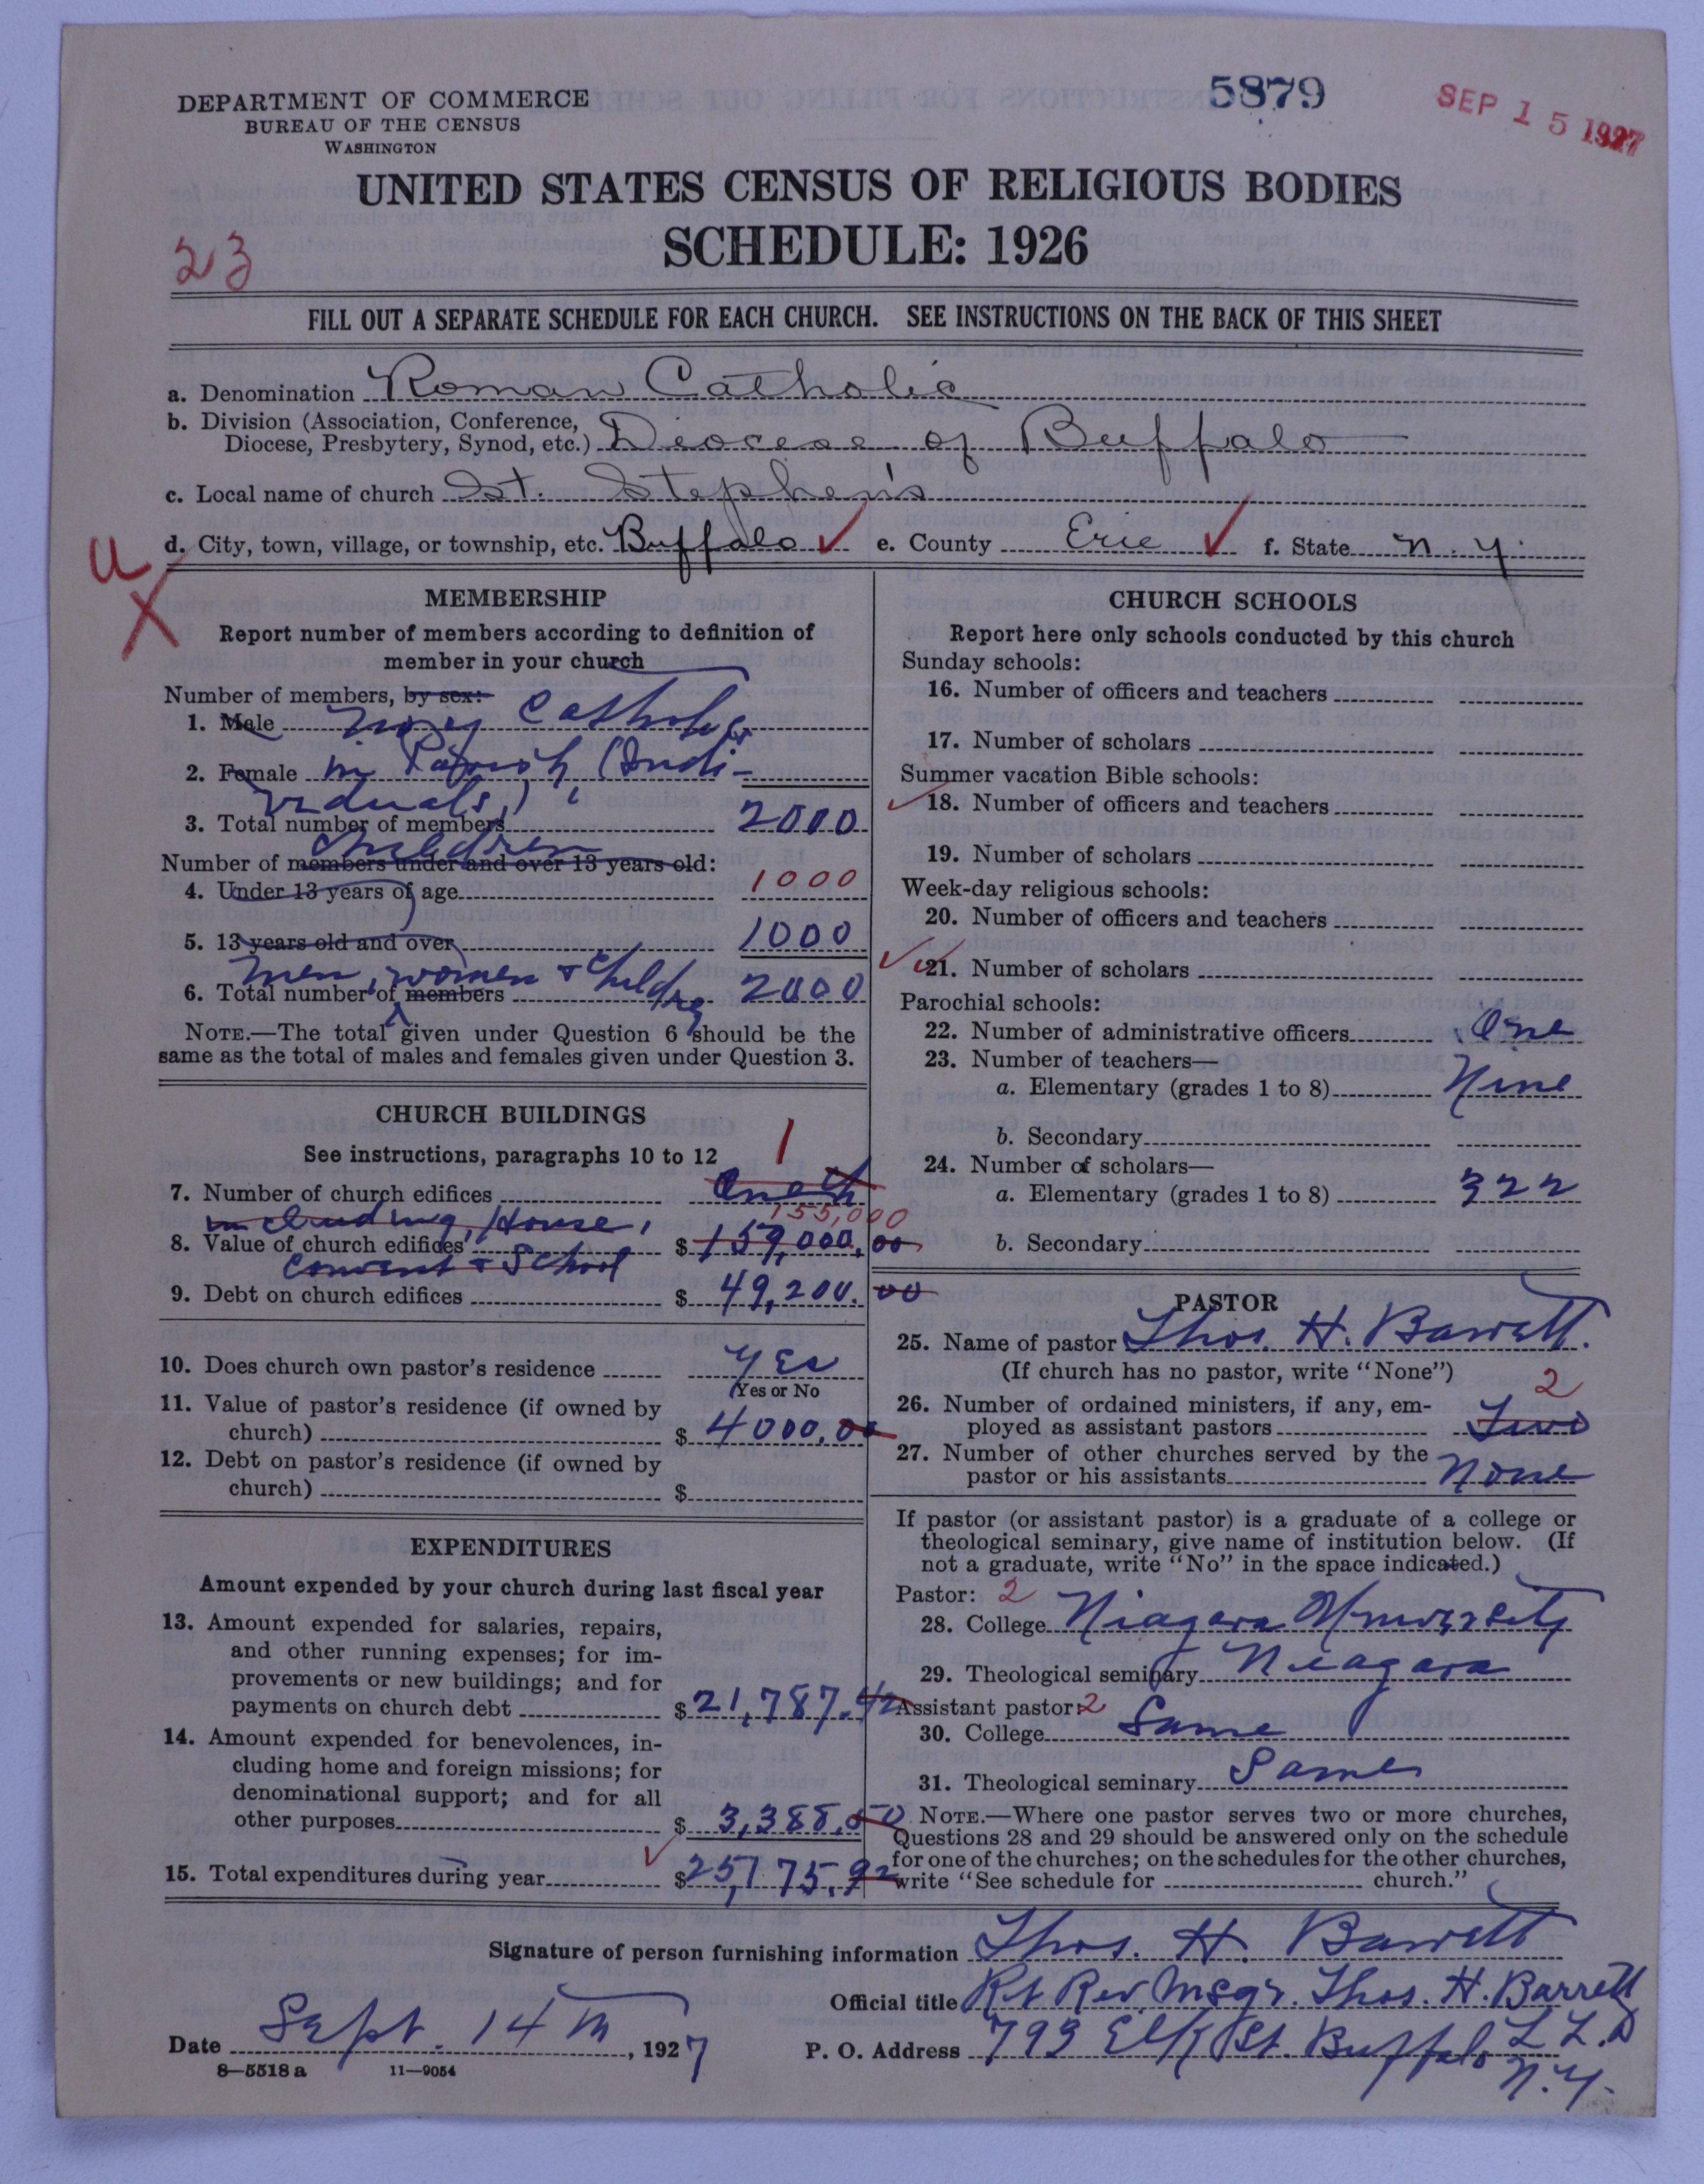 DEPARTMENT OF COMMERCE
BUREAU OF THE CENSUS
WASHINGTON
5879
SEP 15 1927
UNITED STATES CENSUS OF RELIGIOUS BODIES
SCHEDULE: 1926
23
FILL OUT A SEPARATE SCHEDULE FOR EACH CHURCH. SEE INSTRUCTIONS ON THE BACK OF THIS SHEET
a. Denomination Roman Catholic
b. Division (Association, Conference,
Diocese, Presbytery, Synod, etc.) Diocese of Buffalo
c. Local name of church St. Stephen's
d. City, town, village, or township, etc. Buffalo e. County Erie f. State N.Y.
MEMBERSHIP
Report number of members according to definition of
member in your church
Number of members, by sex:
1. Male Catholics
2. Female in Parish (Indi-
viduals)
3. Total number of members 2000
Children
Number of members under and over 13 years old:
4. Under 13 years of age 1000
5. 13 years old and over 1000
men, women + Children
6. Total number of members 2000
NOTE.—The total given under Question 6 should be the
same as the total of males and females given under Question 3.
CHURCH BUILDINGS
See instructions, paragraphs 10 to 12
1
7. Number of church edifices
including House,
155,000
8. Value of church edifices $159,000.00
Convent + School
9. Debt on church edifices $49,200.00
10. Does church own pastor's residence Yes
(Yes or No
11. Value of pastor's residence (if owned by
church) $4000.00
12. Debt on pastor's residence (if owned by
church) $
EXPENDITURES
Amount expended by your church during last fiscal year
13. Amount expended for salaries, repairs,
and other running expenses; for im-
provements or new buildings; and for
payments on church debt $21,787.42
14. Amount expended for benevolences, in-
cluding home and foreign missions; for
denominational support; and for all
other purposes $3,388.50
15. Total expenditures during year $25,175.92
CHURCH SCHOOLS
Report here only schools conducted by this church
Sunday schools:
16. Number of officers and teachers
17. Number of scholars
Summer vacation Bible schools:
18. Number of officers and teachers
19. Number of scholars
Week-day religious schools:
20. Number of officers and teachers
21. Number of scholars
Parochial schools:
22. Number of administrative officers One
23. Number of teachers—
a. Elementary (grades 1 to 8) Nine
b. Secondary
24. Number of scholars—
a. Elementary (grades 1 to 8) 322
b. Secondary
PASTOR
25. Name of pastor Thos. H. Barrett.
(If church has no pastor, write "None")
2
26. Number of ordained ministers, if any, em-
ployed as assistant pastors Two
27. Number of other churches served by the
pastor or his assistants None
If pastor (or assistant pastor) is a graduate of a college or
theological seminary, give name of institution below. (If
not a graduate, write "No" in the space indicated.)
Pastor: 2
28. College Niagara University
29. Theological seminary Niagara
Assistant pastor: 2
30. College Same
31. Theological seminary Same
NOTE.—Where one pastor serves two or more churches,
Questions 28 and 29 should be answered only on the schedule
for one of the churches; on the schedules for the other churches,
write "See schedule for church."
Signature of person furnishing information Thos. H. Barrett
Official title Rt Rev. Msgr. Thos. H. Barrett
LL.D
Date Sept. 14th, 1927 P. O. Address 793 Elk St. Buffalo
N.Y.
8—5518 a 11—9054